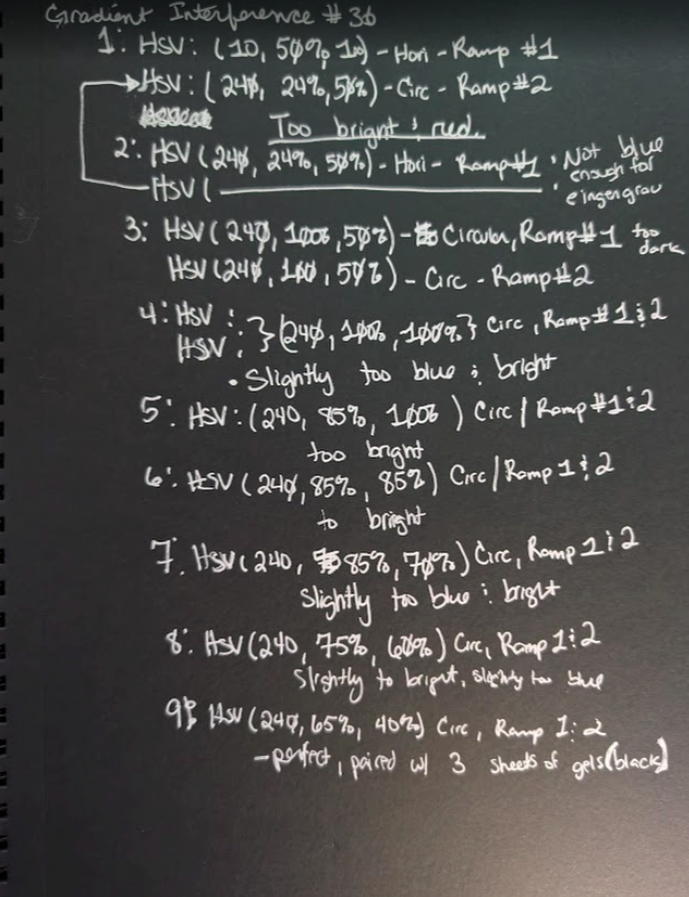 Gradient Interference # 36
1: HSV: (10, 50%, 10) - Hori - Ramp #1
HSV: (240, 24%, 50%) - Circ - Ramp #2
Too bright & red.
2: HSV (240, 24%, 50%) - Hori - Ramp #1 · Not blue
enough for
HSV ( · eingengrau
3: HSV (240, 100%, 50%) - Circular, Ramp #1 too
dark
HSV (240, 100, 50%) - Circ - Ramp #2
4: HSV :
HSV : } {240, 100%, 100%} Circ, Ramp # 1 & 2
• Slightly too blue & bright
5: HSV: (240, 85%, 100%) Circ / Ramp #1 & 2
too bright
6: HSV (240, 85%, 85%) Circ / Ramp 1 & 2
to bright
7: HSV (240, 85%, 70%) Circ, Ramp 1 & 2
Slightly too blue & bright
8: HSV (240, 75%, 60%) Circ, Ramp 1 & 2
Slightly to bright, slightly too blue
9: HSV (240, 65%, 40%) Circ, Ramp 1 & 2
- perfect, paired w/ 3 sheets of gels (black)